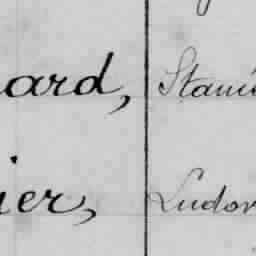 ard, Stani
ier, Ludov